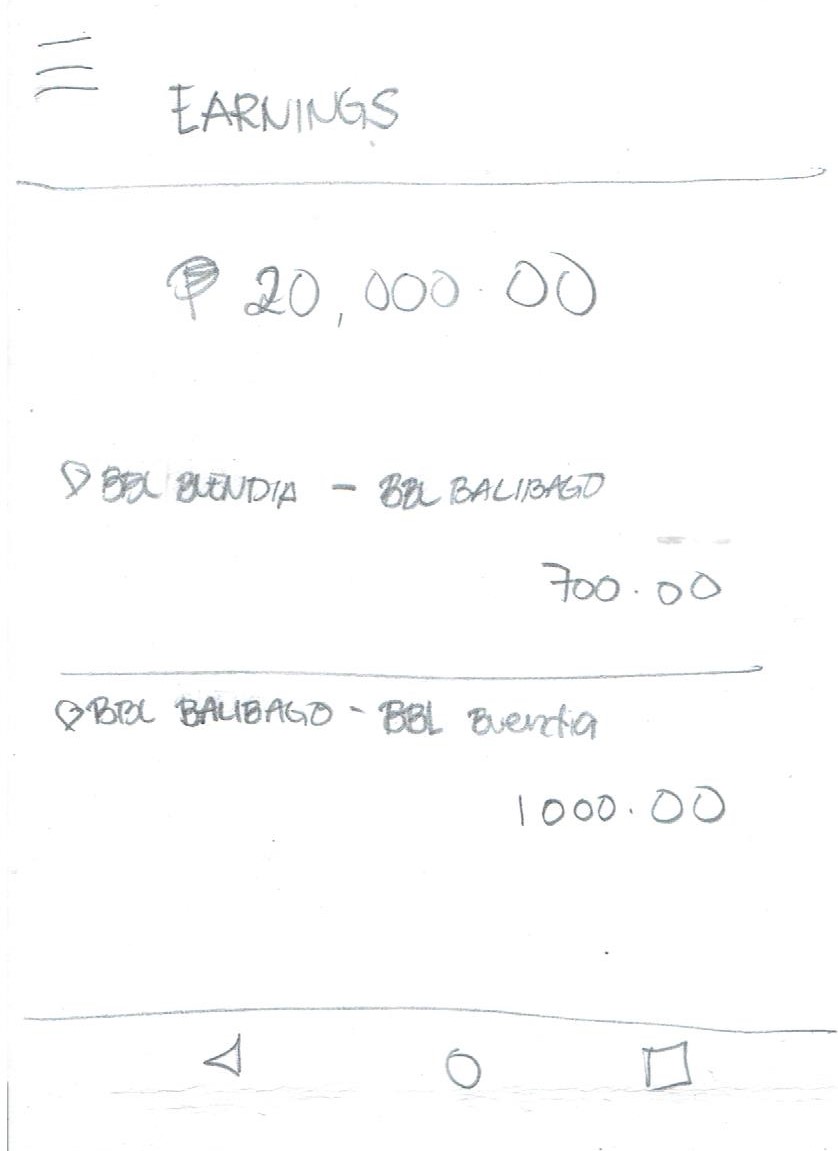 EARNINGS
₱ 20,000.00
BBL BUENDIA - BBL BALIBAGO
700.00
BBL BALIBAGO - BBL Buendia
1000.00